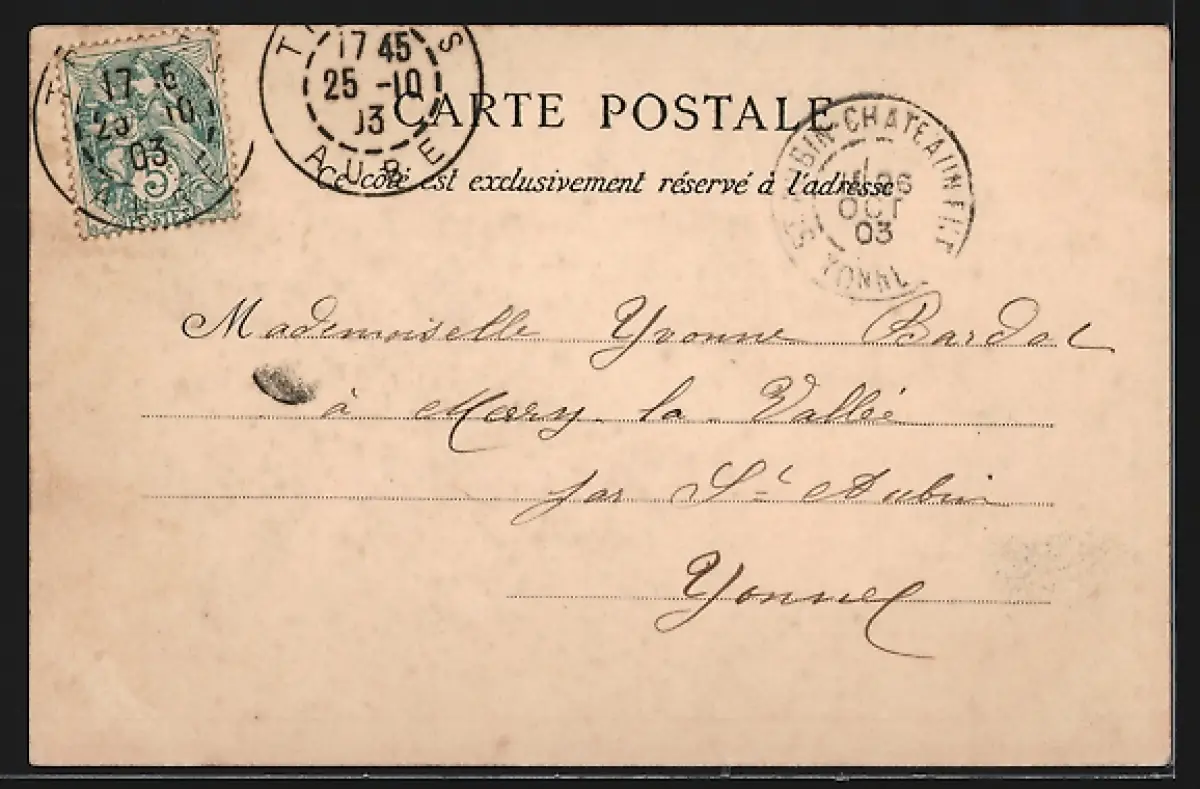 17 45
25 -10
03
AUBE
17 45
25 10
03
5c
POSTES
CARTE POSTALE
Ce côté est exclusivement réservé à l'adresse
ST AUBIN-CHATEAUNEUF
26
OCT
03
YONNE
Mademoiselle Yvonne Bardot
à Merry-la-Vallée
par St Aubin
Yonne